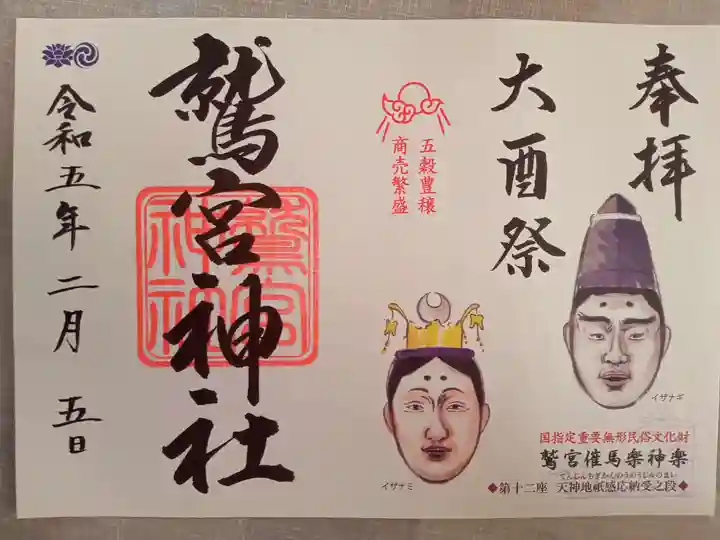 奉拝
大酉祭
五穀豊穣
商売繁盛
イザナギ
イザナミ
国指定重要無形民俗文化財
鷲宮催馬楽神楽
◆第十二座 天神地祇感応納受之段◆
鷲宮神社
鷲宮神社
令和五年二月五日